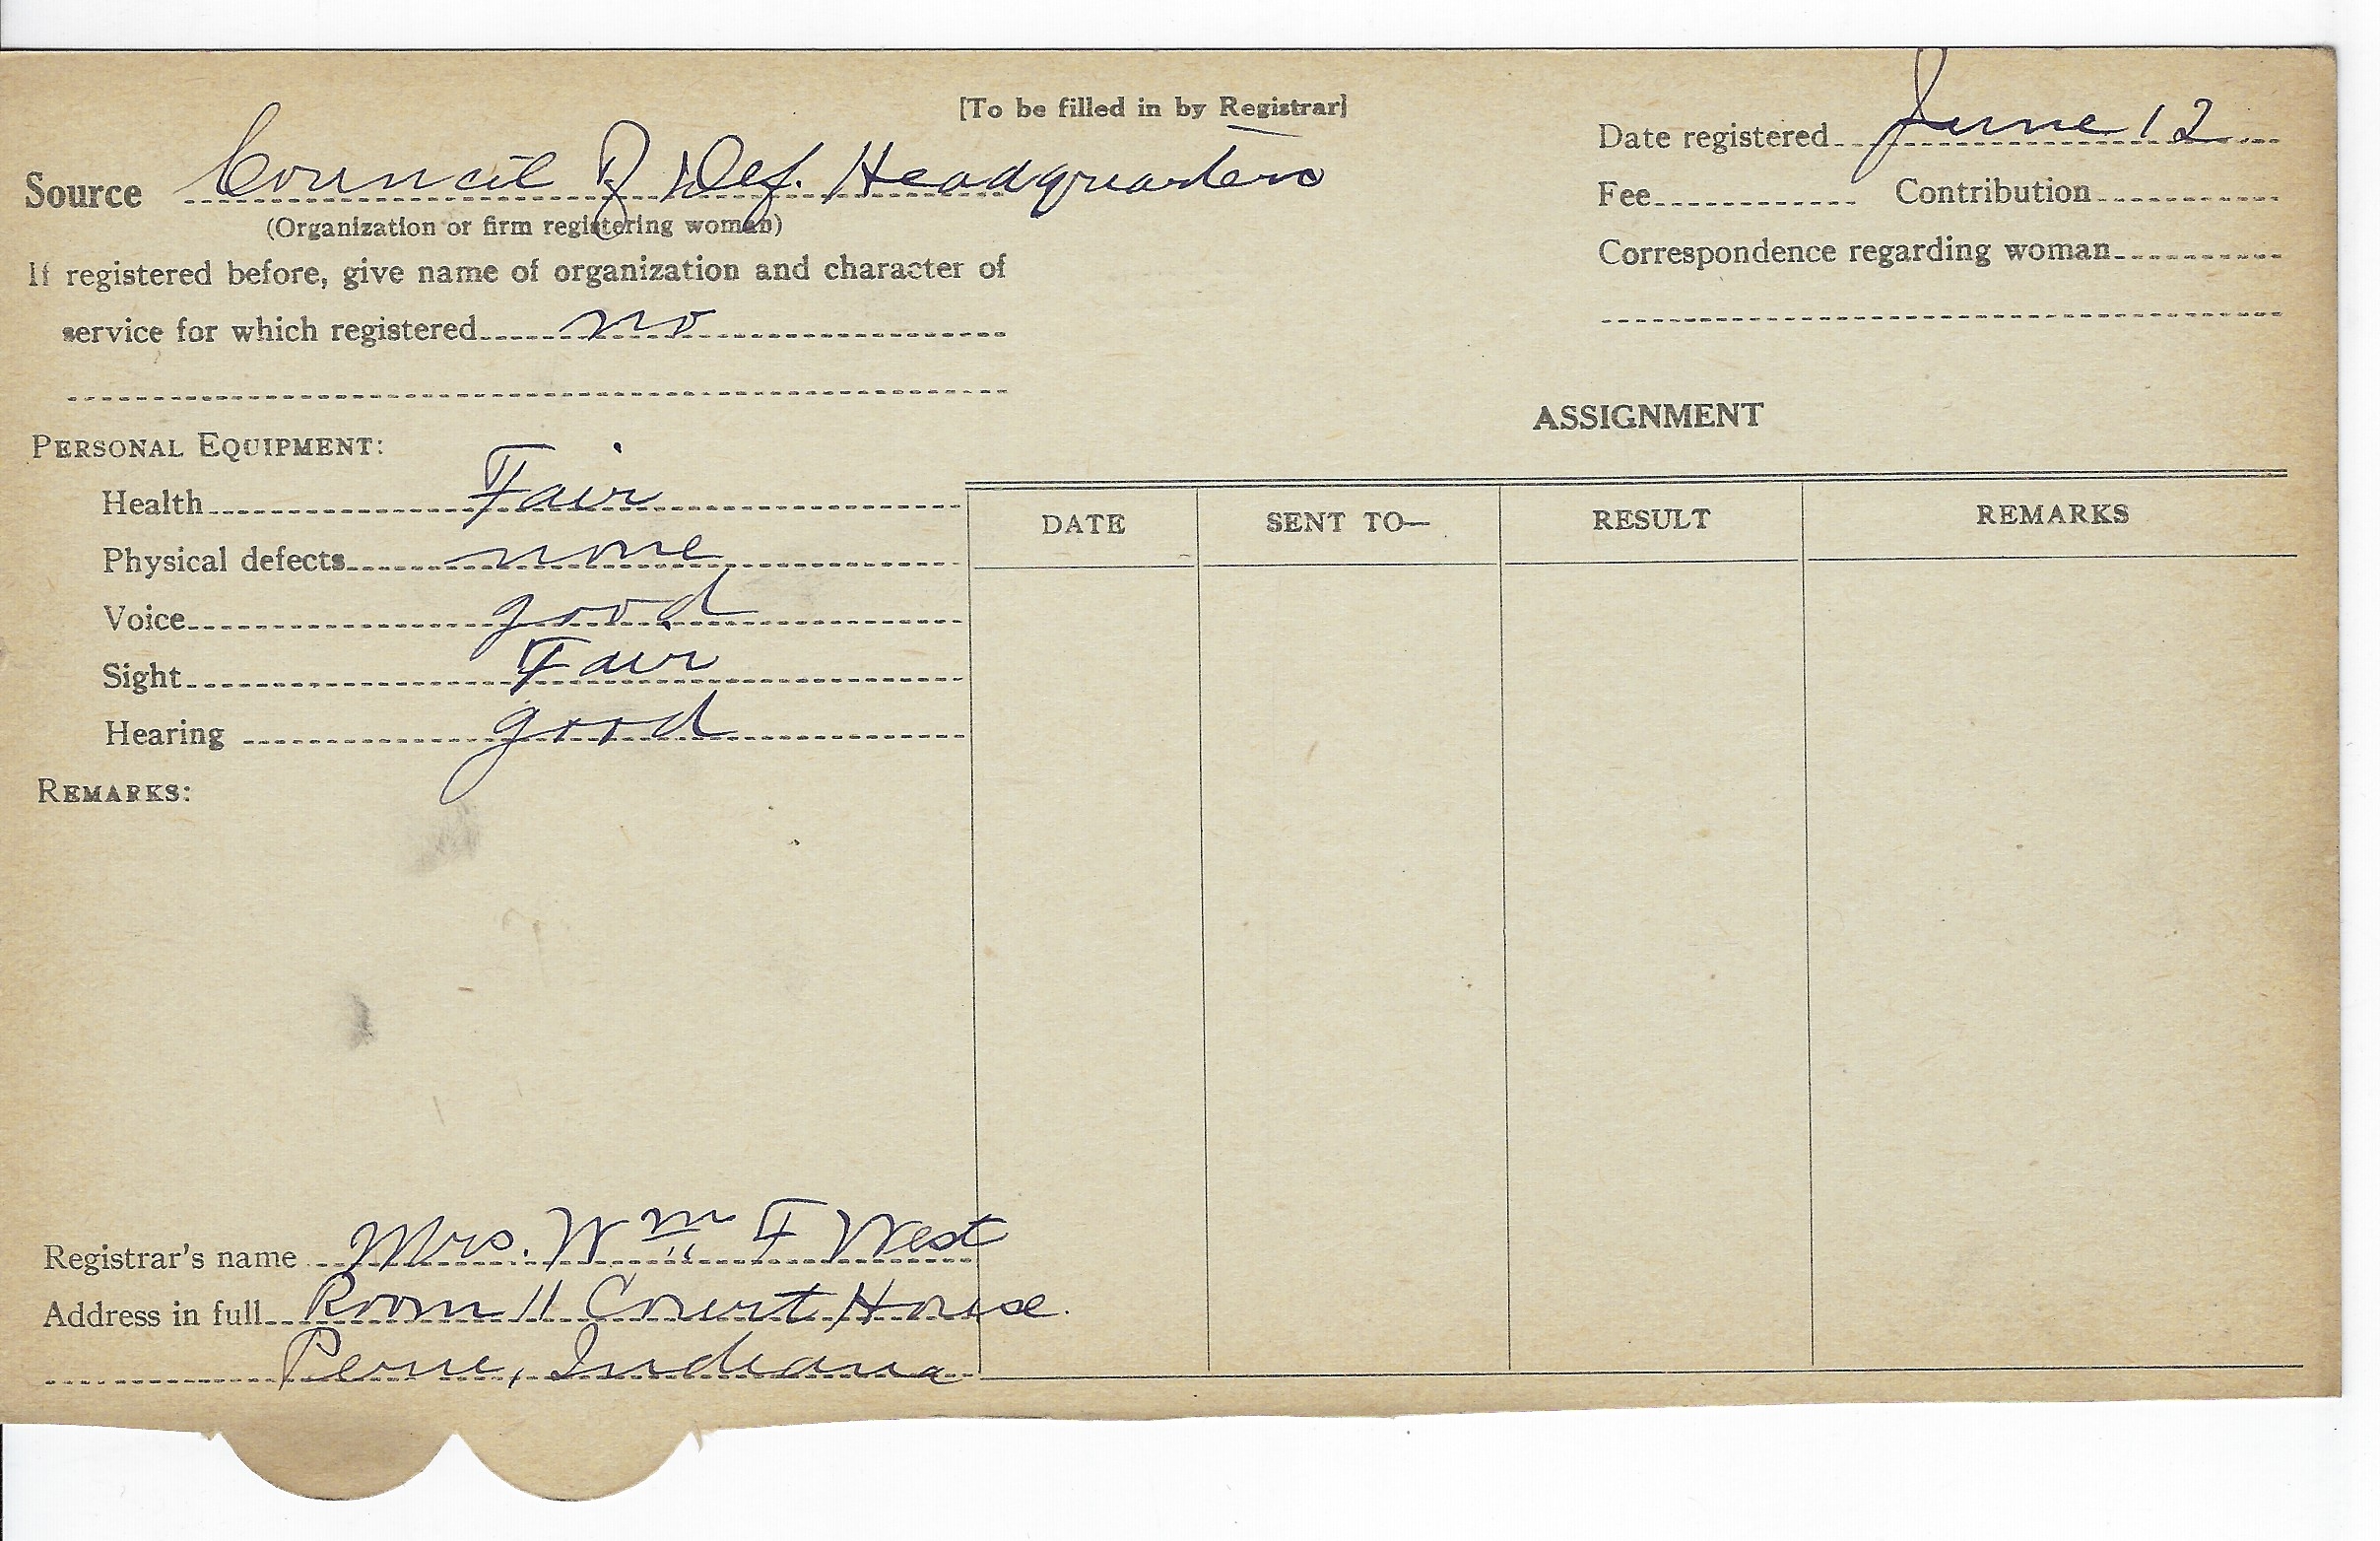 [To be filled in by Registrar]
Date registered June 12
Source Council of Def. Headquarters
Fee Contribution
(Organization or firm registering woman)
Correspondence regarding woman
If registered before, give name of organization and character of
service for which registered no
ASSIGNMENT
PERSONAL EQUIPMENT:
Health Fair
DATE SENT TO— RESULT REMARKS
Physical defects none
Voice good
Sight Fair
Hearing good
REMARKS:
Registrar's name Mrs. Wm F West
Address in full Room 11 Court House.
Peru, Indiana